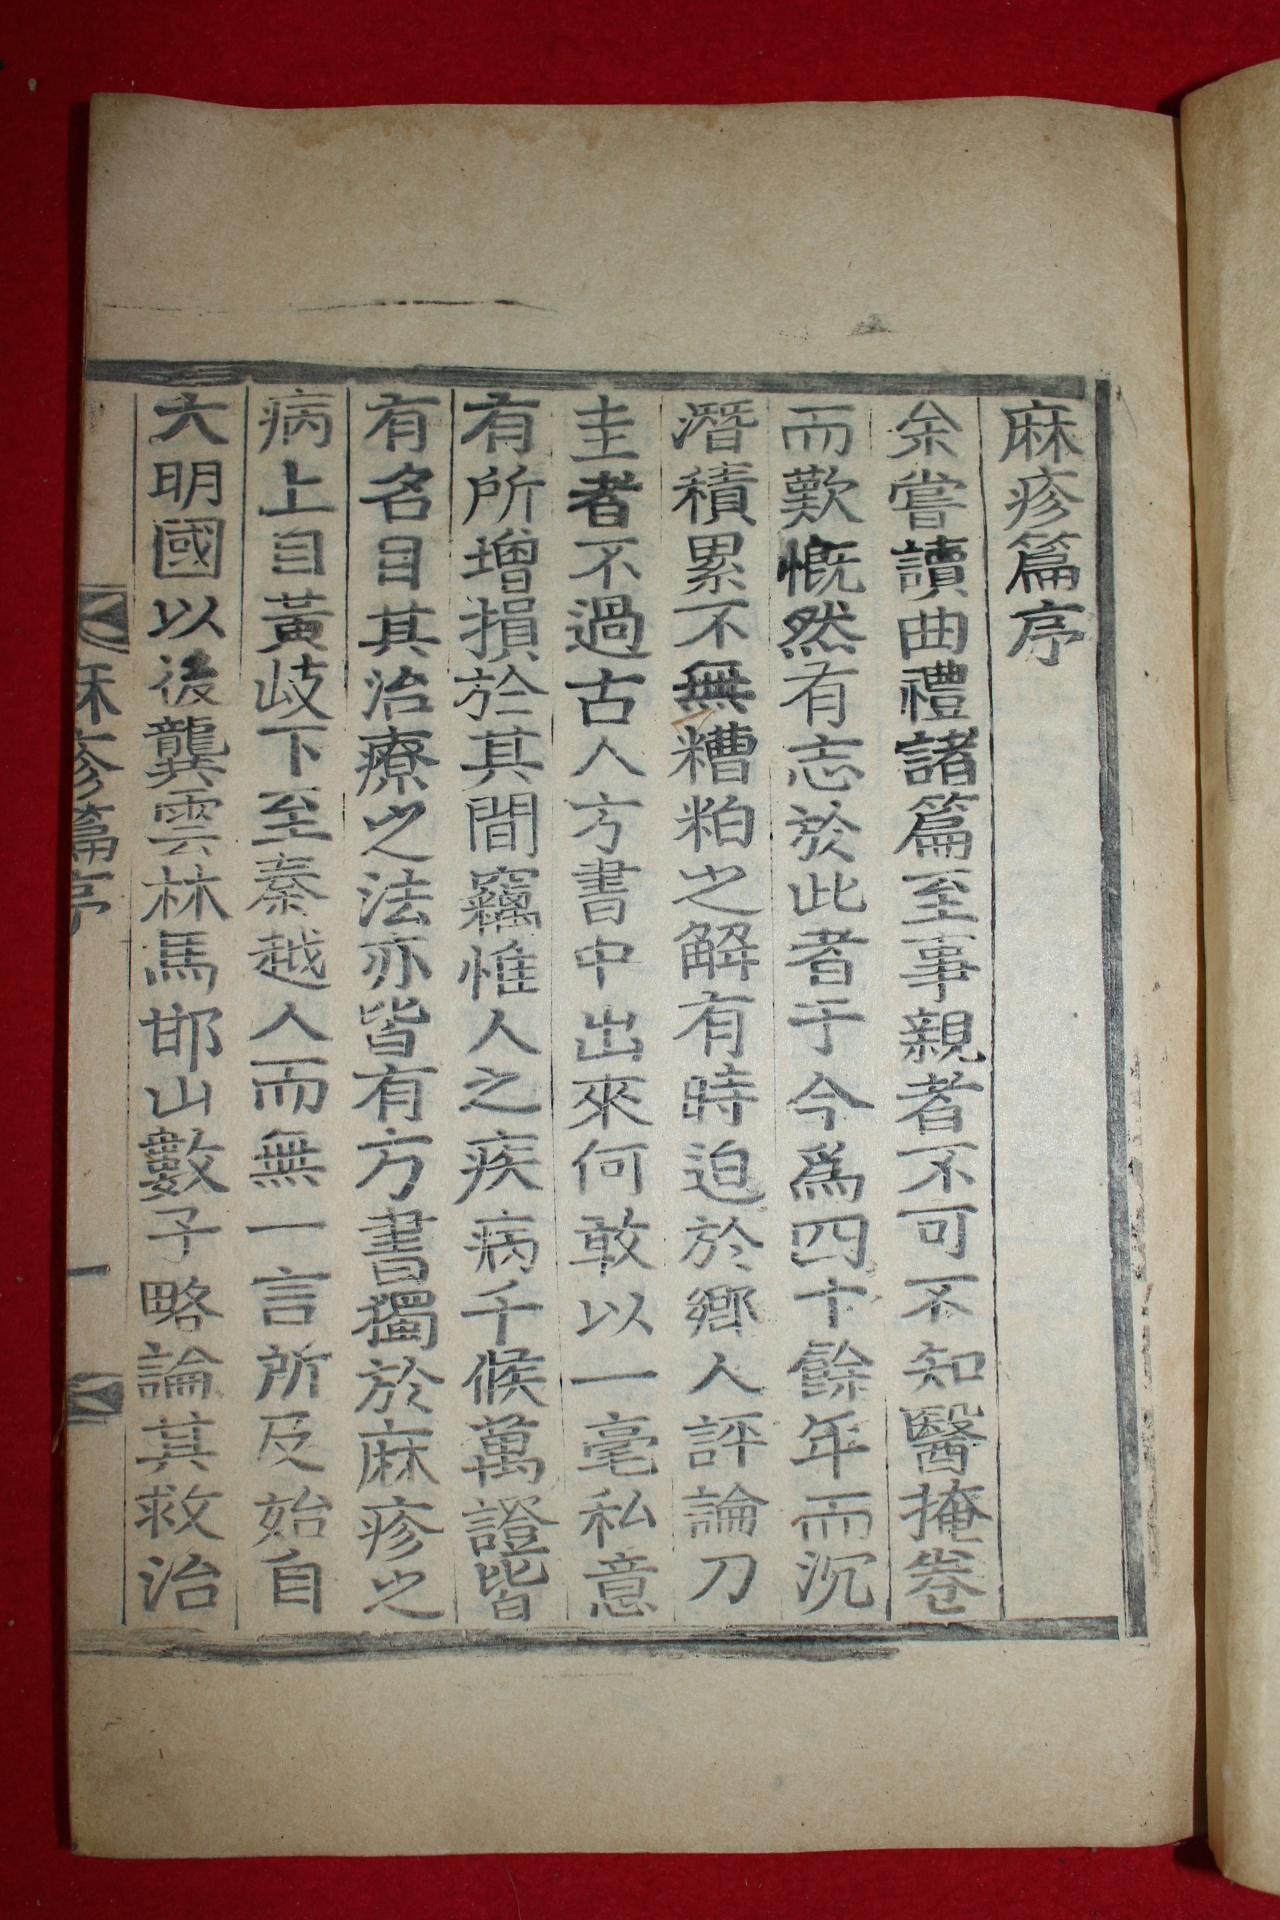 麻疹篇序
余嘗讀曲禮諸篇至事親者不可不知醫掩卷
而歎慨然有志於此者于今爲四十餘年而沉
潛積累不無糟粕之解有時迫於鄕人評論刀
圭者不過古人方書中出來何敢以一毫私意
有所增損於其間竊惟人之疾病千候萬證皆
有名目其治療之法亦皆有方書獨於麻疹之
病上自黃岐下至秦越人而無一言所及始自
大明國以後龔雲林馬邯山數子略論其救治
麻疹篇序 一